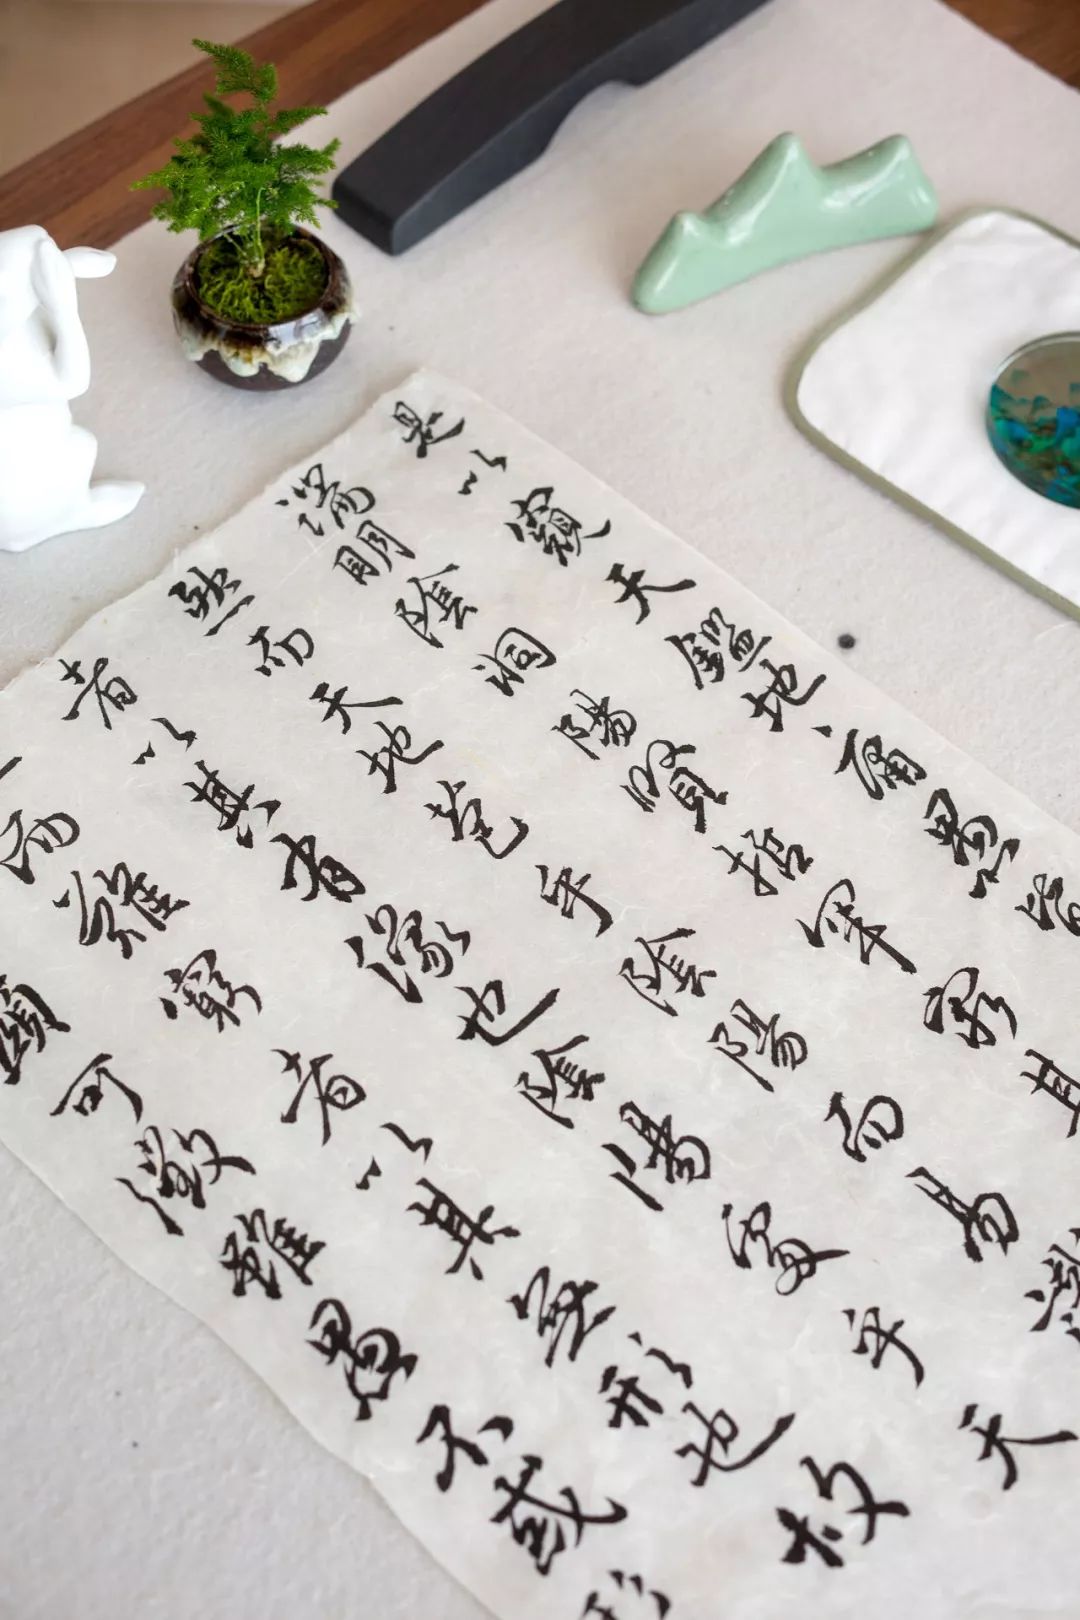 是以窺天鑑地庸愚皆
端明陰洞陽賢哲罕窮其
然而天地苞乎陰陽而易識
者以其有像也陰陽處乎天
而難窮者以其無形也故
顯可徵雖愚不惑形